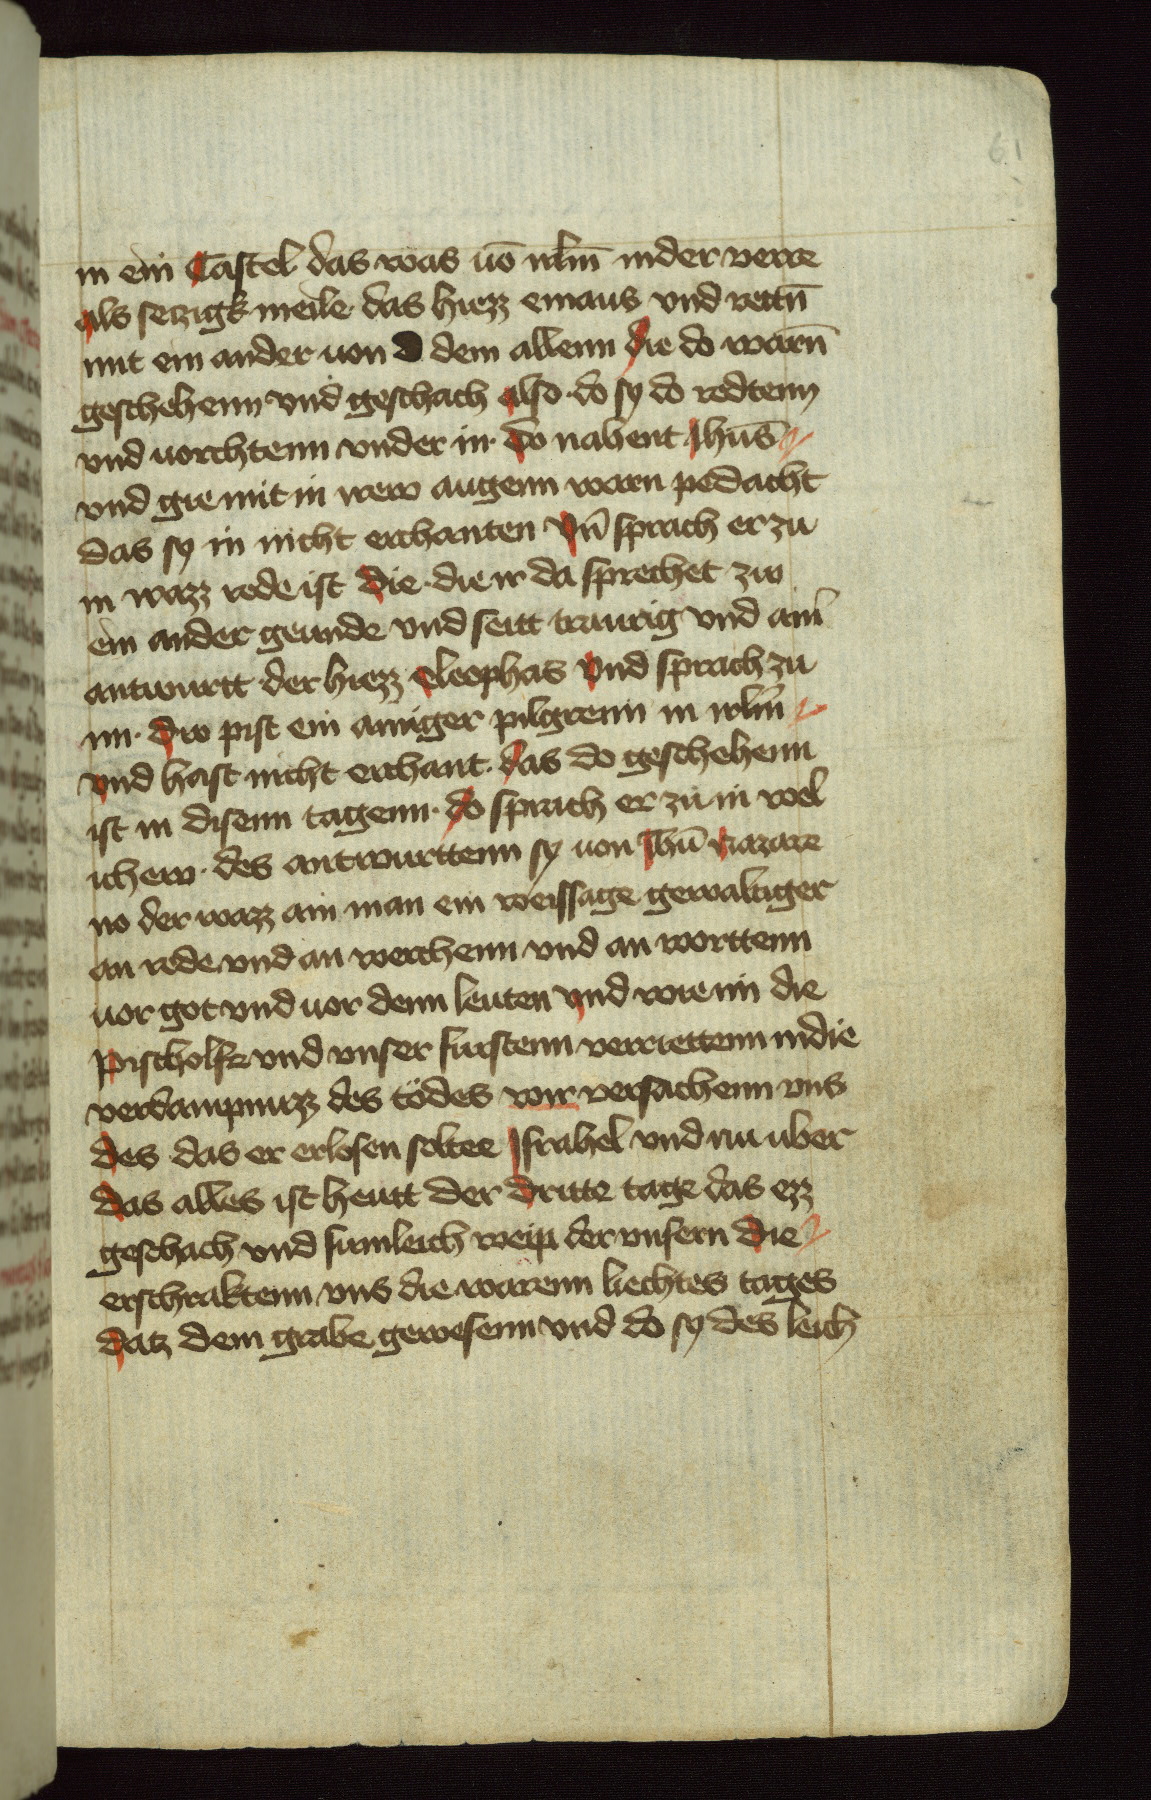 61
in ein Castel das was uō irlm̄ in der verre
als setzigk meile das hiezz emaus vnd rettn̄
mit ein ander uon dem allenn die do warn̄
geschehenn vnd geschach also · do sy do redtenn
vnd uorchtenn vnder in · Do nahent Jhūs
vnd gie mit in irew augenn warn pedacht
das sy in nicht erchanten Vn̄ sprach er zu
in wazz rede ist die · die ir da sprechet zw
ein ander geunde vnd seitt traurig vnd ain̄
antwurtt der hiezz Cleophas Vnd sprach zu
im · dw pist ein ainiger pilgreim in irlm̄
vnd hast nicht erchant · das do geschehenn
ist in disenn tagenn · do sprach er zu in wel
ichew · des antwurttenn sy uon Jhū Nazare
no der wazz ain man ein weissage gewaltiger
an rede vnd an werchenn vnd an worttenn
uor got vnd uor denn leuten vnd wie in die
Pischolff vnd vnser furstenn verriettenn in die
verdampnuzz des tödes wir versachenn vns
des das er erlosen soltee Israhel vnd nu uber
das alles ist heutt der dritte tage das ezz
geschach vnd sumleich weip der vnsern die
erschraktenn vns die warenn liechtes tages
datz dem grabe gewesenn vnd do sy des leich